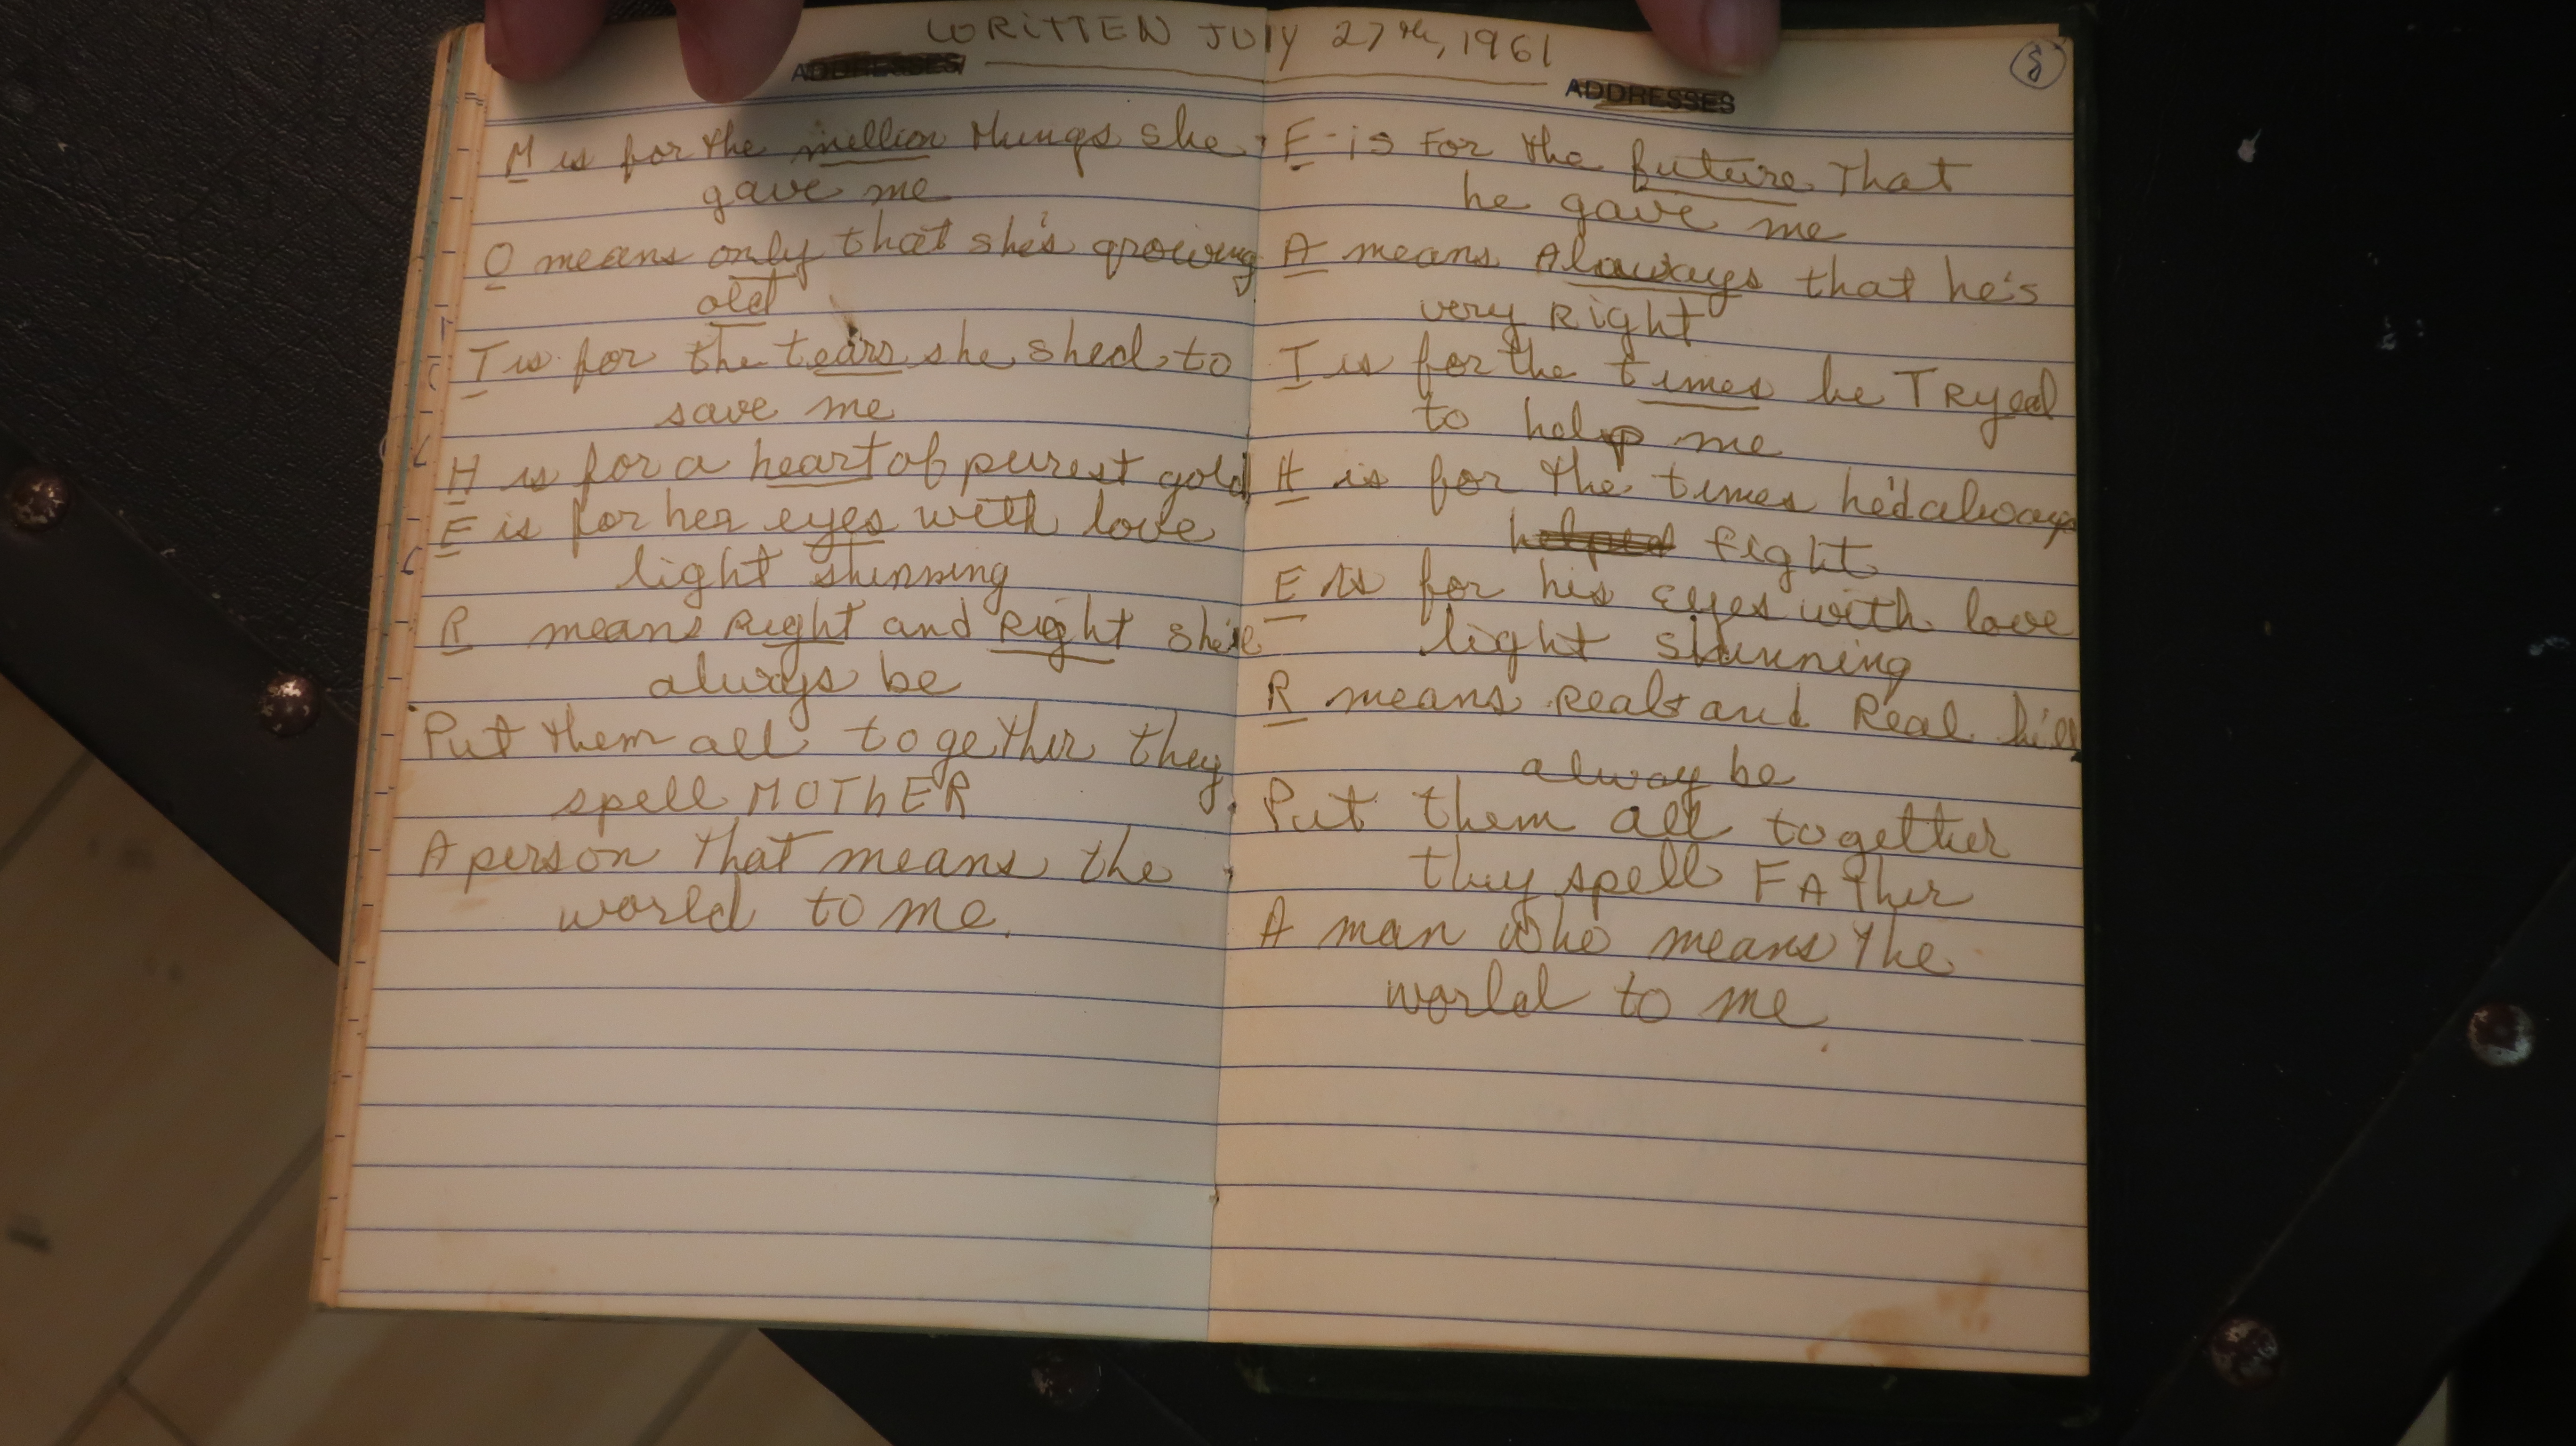 WRITTEN JULY 27th, 1961
ADDRESSES
M is for the million things she
gave me
O means only that she's growing
old
T is for the tears she shed to
save me
H is for a heart of purest gold
E is for her eyes with love
light shinning
R means Right and Right she'll
always be
Put them all together they
spell MOThER
A person that means the
world to me.
ADDRESSES
8
F - is For the future That
he gave me
A means Alaways that he's
very Right
T is for the times he TRyed
to help me
H is for the times he'd always
helped fight
E is for his eyes with love
light shinning
R means Real and Real he'll
alway be
Put them all together
they spell FATher
A man who means the
world to me